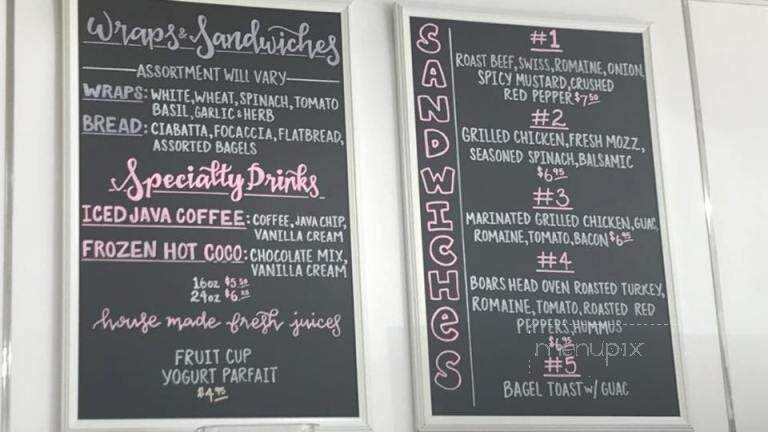 Wraps & Sandwiches
ASSORTMENT WILL VARY
WRAPS: WHITE, WHEAT, SPINACH, TOMATO
BASIL, GARLIC & HERB
BREAD: CIABATTA, FOCACCIA, FLATBREAD,
ASSORTED BAGELS
Specialty Drinks
ICED JAVA COFFEE: COFFEE, JAVA CHIP,
VANILLA CREAM
FROZEN HOT COCO: CHOCOLATE MIX,
VANILLA CREAM
16oz $5.50
24oz
house made fresh juices
FRUIT CUP
YOGURT PARFAIT
$4.95
SANDWICHES
#1
ROAST BEEF, SWISS, ROMAINE, ONION,
SPICY MUSTARD, CRUSHED
RED PEPPER $7.50
#2
GRILLED CHICKEN, FRESH MOZZ,
SEASONED SPINACH, BALSAMIC
$6.95
#3
MARINATED GRILLED CHICKEN, GUAC,
ROMAINE, TOMATO, BACON $6.95
#4
BOARS HEAD OVEN ROASTED TURKEY,
ROMAINE, TOMATO, ROASTED RED
PEPPERS, HUMMUS
$6.95
menupix
#5
BAGEL TOAST w/ GUAC